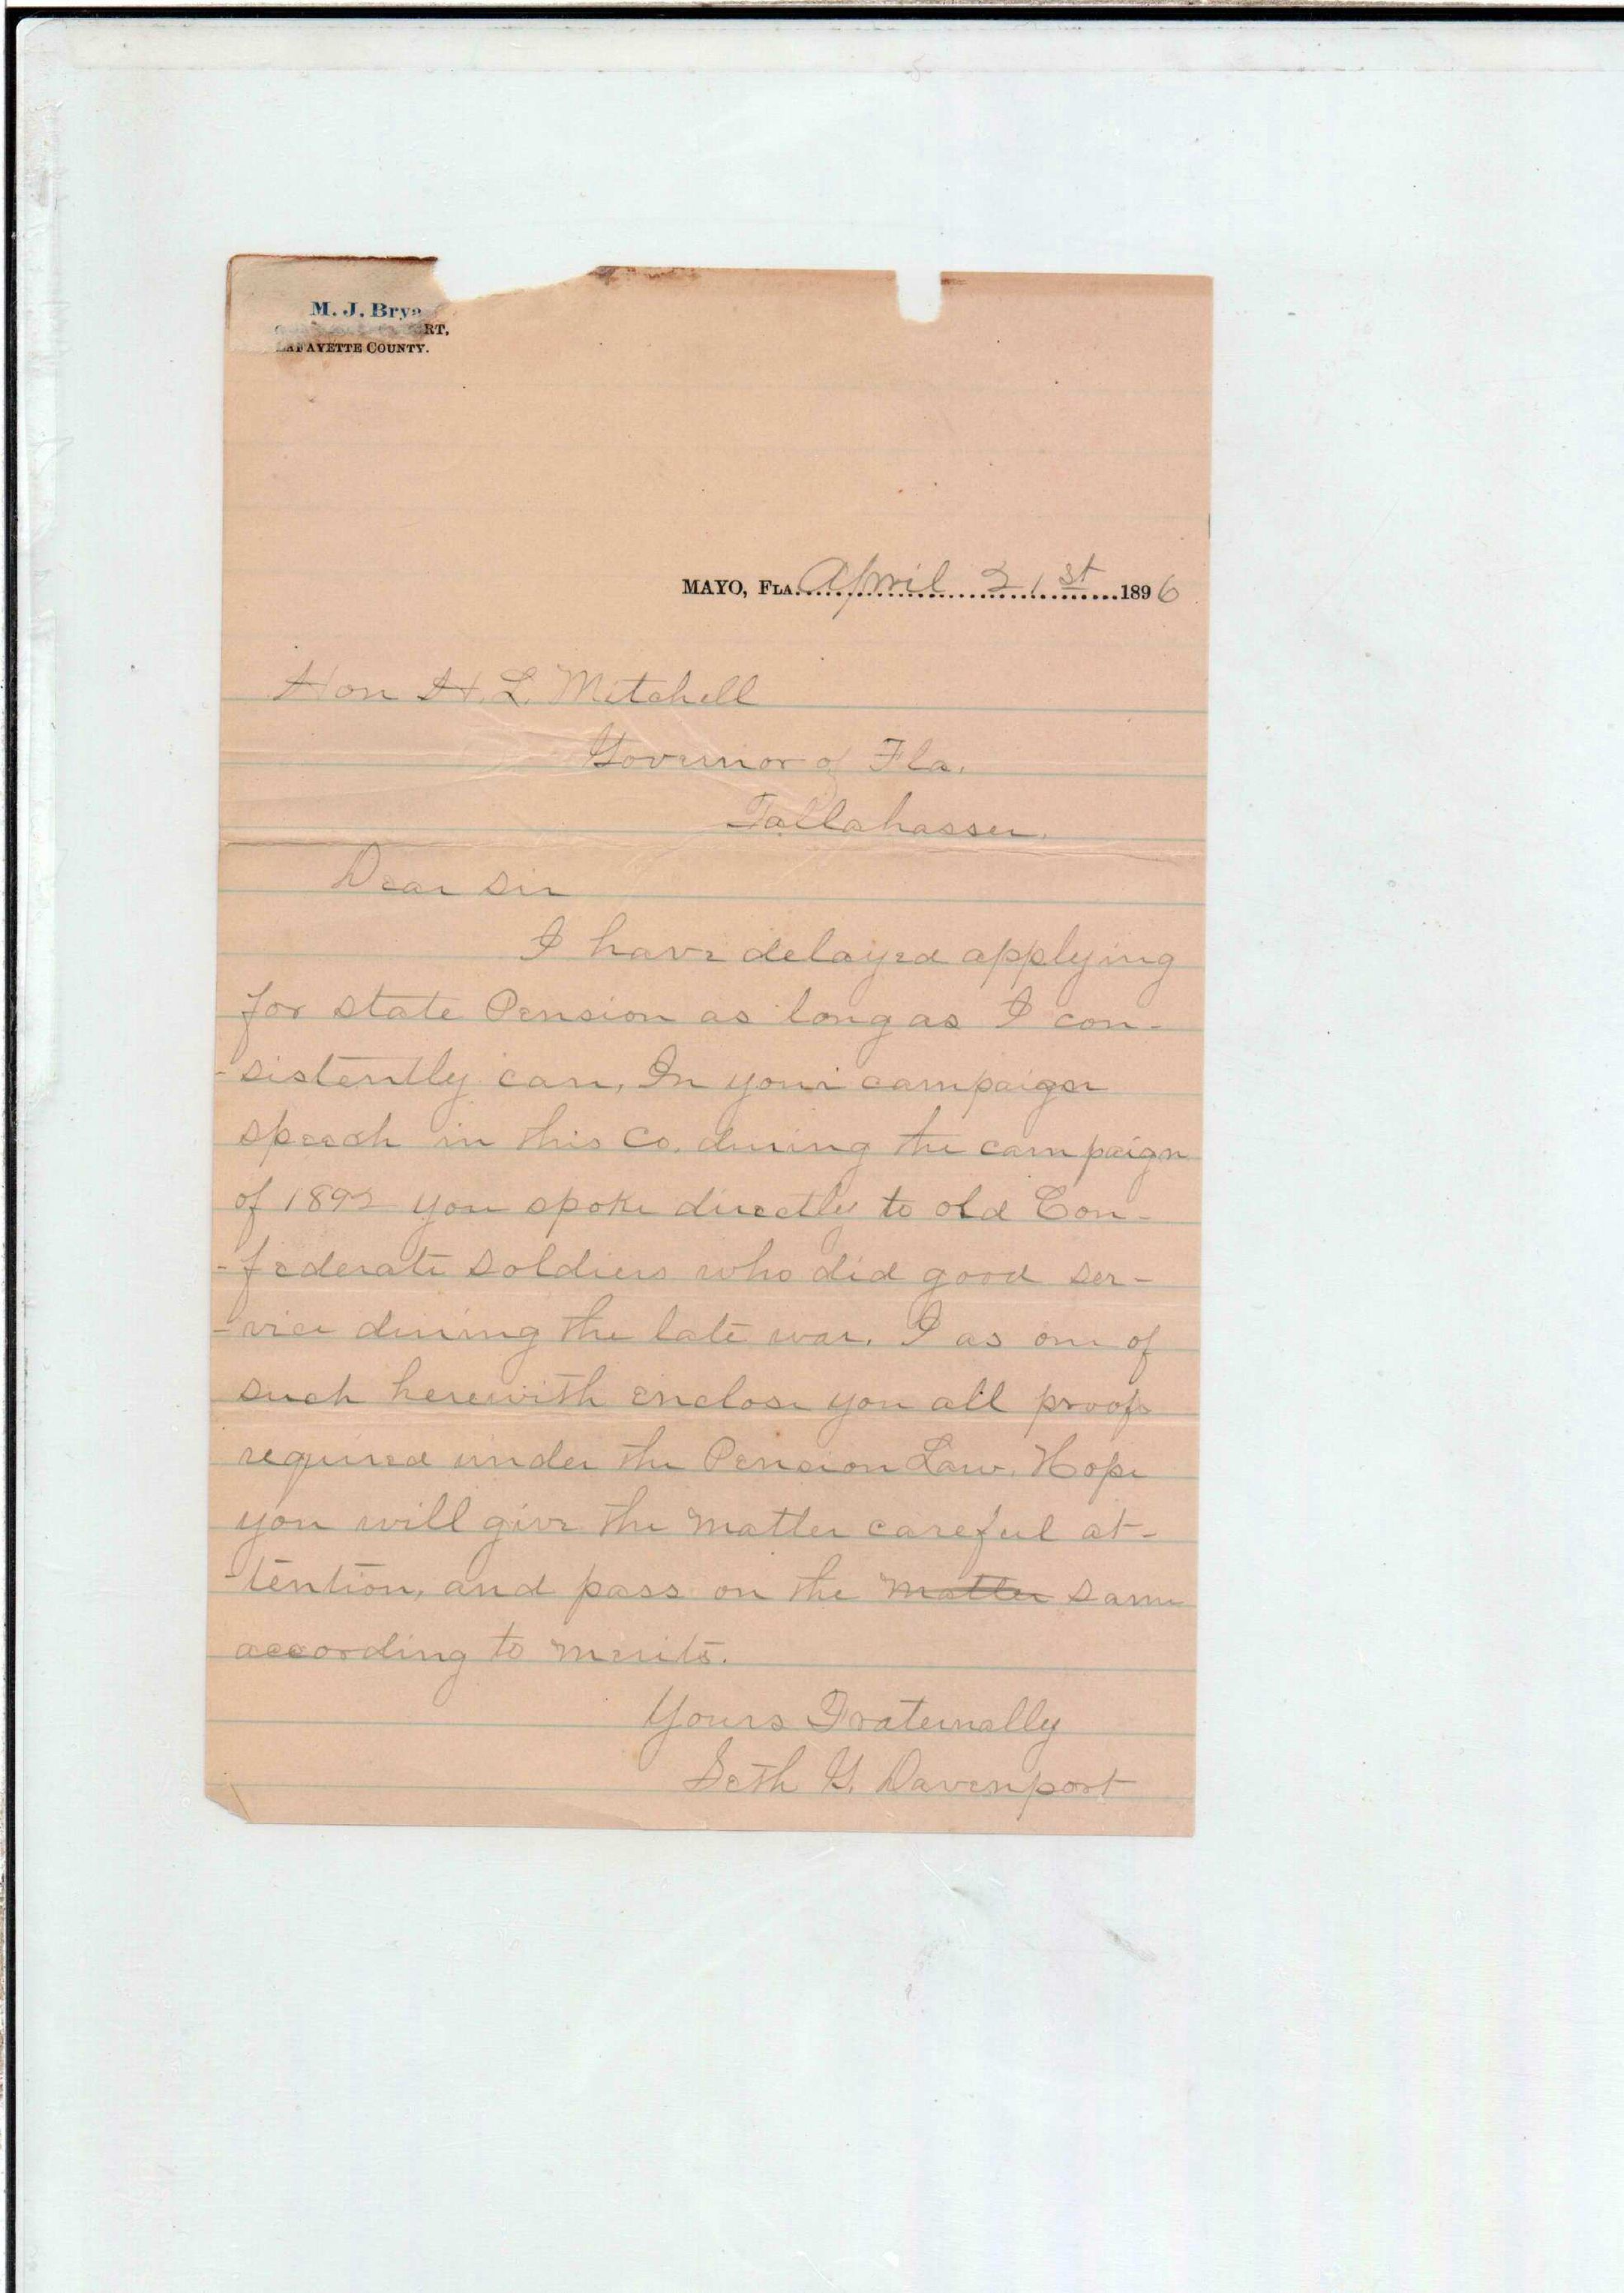 M. J. Brya
RT,
LAFAYETTE COUNTY.
MAYO, FLA. April 21st 1896
Hon H. L. Mitchell
Governor of Fla.
Tallahassee.
Dear Sir
I have delayed applying
for state Pension as long as I con-
-sistently can, In your campaign
speech in this Co. during the campaign
of 1892 you spoke directly to old Con-
-federate soldiers who did good ser-
-vice during the late war. I as one of
such herewith enclose you all proofs
required under the Pension Law. Hope
you will give the matter careful at-
-tention, and pass on the matter same
according to merits.
Yours Fraternally
Seth G. Davenport